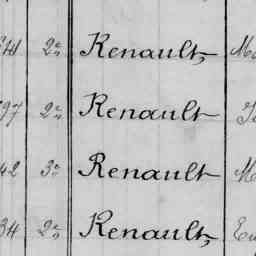 41 2e Renault,
97 2e Renault
42 3e Renault
34 2e Renault,